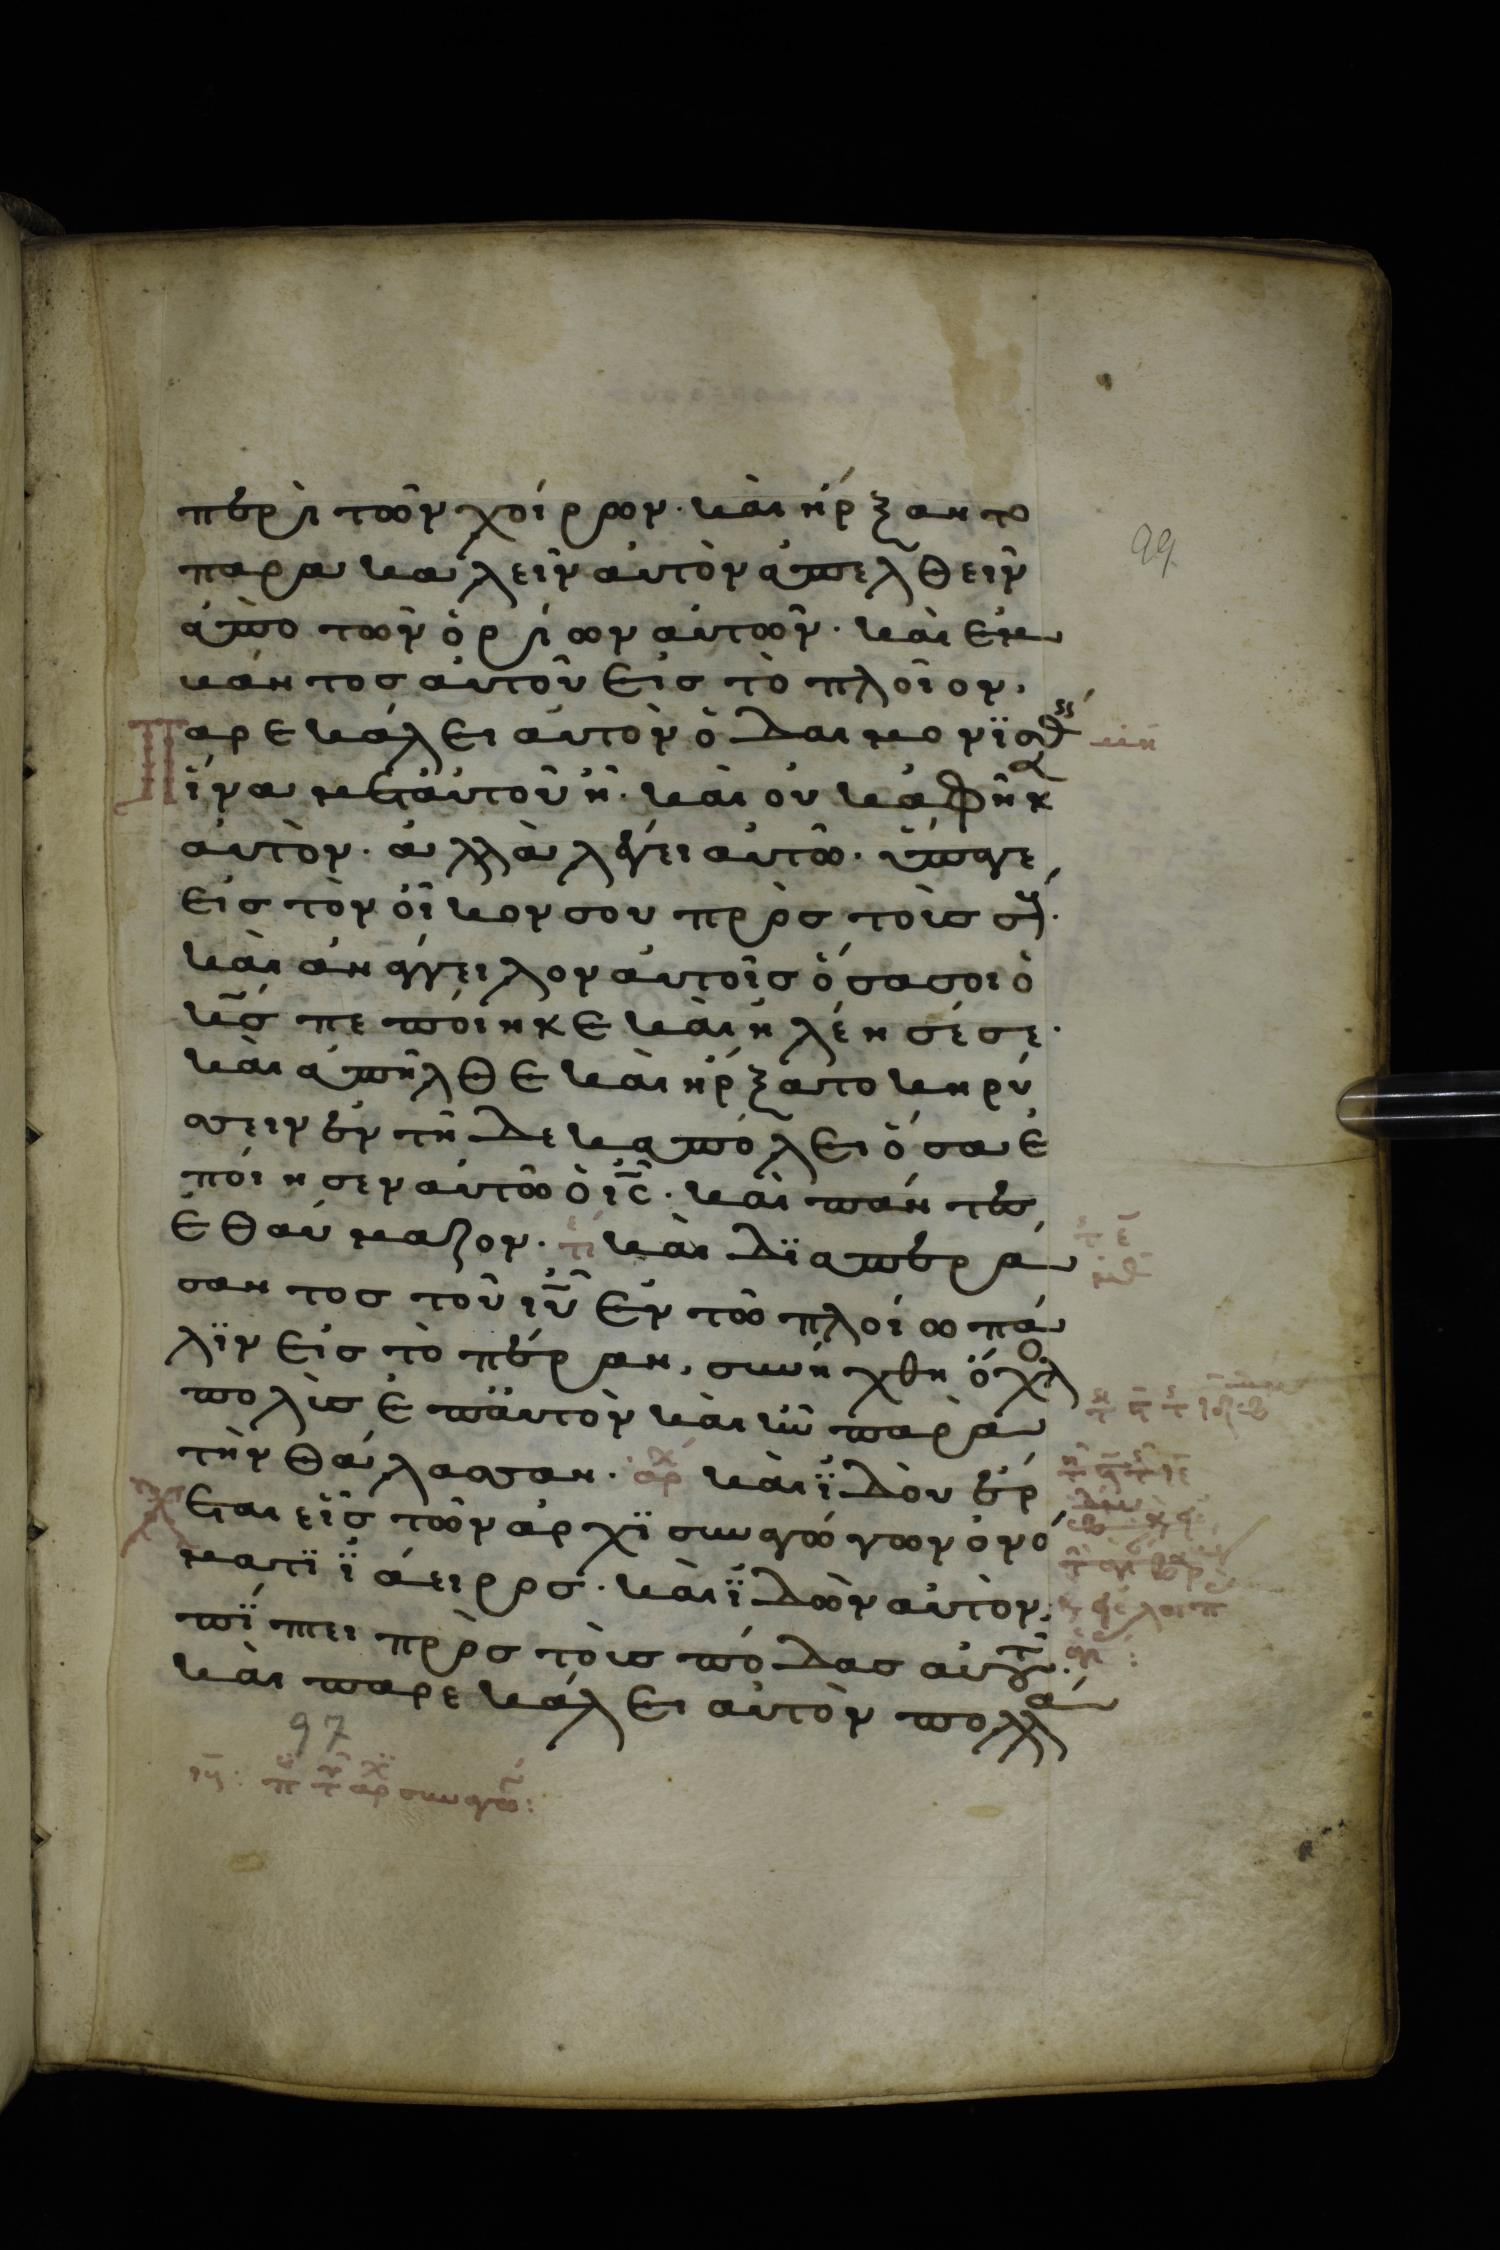 περὶ τῶν χοίρων· καὶ ἤρξαντο
παρακαλεῖν αὐτὸν ἀπελθεῖν
ἀπὸ τῶν ὁρίων αὐτῶν· καὶ ἐμ
βάντος αὐτοῦ εἰς τὸ πλοῖον,
Παρεκάλει αὐτὸν ὁ δαιμονϊσθ
ἵνα μετ αὐτοῦ ἦ· καὶ οὐκ ἀφῆκ
αὐτόν· ἀλλὰ λέγει αὐτῶ· ὕπαγε
εἰς τὸν οἶκον σου πρὸς τοὺς σούς·
καὶ ἀνάγγειλον αὐτοῖς ὅσα σοι ὁ
κς πεποίηκε καὶ ἠλέησέ σε·
καὶ ἀπῆλθε καὶ ἤρξατο κηρύ
σσειν ἐν τῆ δεκαπόλει ὅσα ἐ
ποίησεν αὐτῶ ὁ ις· καὶ πάντες
ἐθαύμαζον· τε καὶ δϊαπερά
σαντος τοῦ ιυ ἐν τῶ πλοίω πά
λϊν εἰς τὸ πέραν, συνήχθη ὄχλο
πολὺς ἐπ αὐτὸν καὶ ἦν παρὰ
τὴν θάλασσαν· ἀρχ καὶ ϊδοὺ ἔρ
Χεται εἷς τῶν ἀρχϊσυναγώγων ὀνό
ματϊ ϊάειρος· καὶ ϊδὼν αὐτὸν,
πίπτει πρὸς τοὺς πόδας αὐτοῦ·
καὶ παρεκάλει αὐτὸν πολλά
99
97